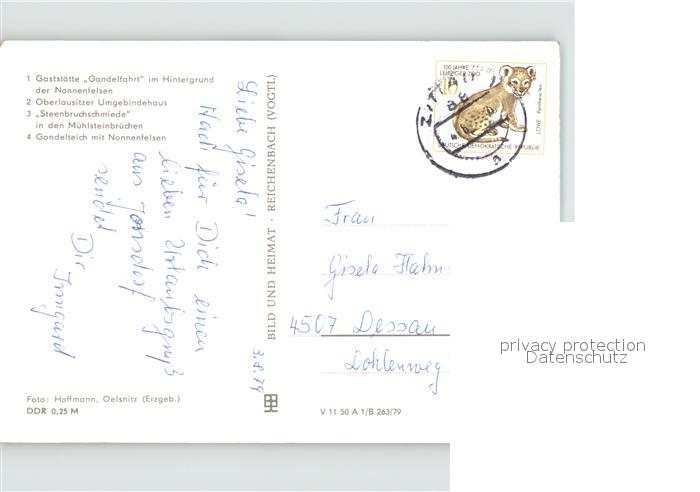 1 Gaststätte „Gondelfahrt“ im Hintergrund
der Nonnenfelsen
2 Oberlausitzer Umgebindehaus
3 „Steenbruchschmiede“
in den Mühlsteinbrüchen
4 Gondelteich mit Nonnenfelsen
Liebe Gisela!
Hast für Dich einen
lieben Urlaubsgruß
aus Jonsdorf
sendet
Dir
Irmgard
3.8.79
Foto: Hoffmann, Oelsnitz (Erzgeb.)
DDR 0,25 M
BILD UND HEIMAT · REICHENBACH (VOGTL)
V 11 50 A 1/B 263/79
100 JAHRE
LEIPZIGER ZOO
10
LÖWE Panthera leo
DEUTSCHE DEMOKRATISCHE REPUBLIK
Frau
Gisela Hahn
4507 Dessau
Dohlenweg
privacy protection
Datenschutz